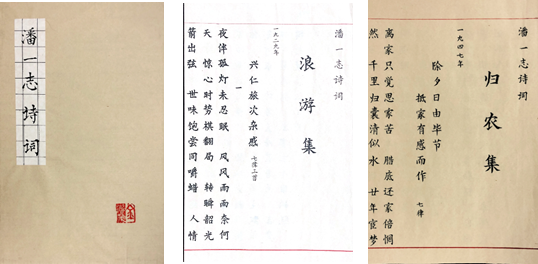 潘一志诗词
潘一志诗词
浪游集
一九二九年
兴仁旅次杂感 七律二首
一
夜伴孤灯未忍眠 风风雨雨奈何
天 惊心时势棋翻局 转瞬韶光
箭出弦 世味饱尝同嚼蜡 人情
潘一志诗词
归农集
一九四七年
除夕日由毕节
抵家有感而作 七律
离家只觉思家苦 腊底还家倍惘
然 千里归囊清似水 廿年宦梦